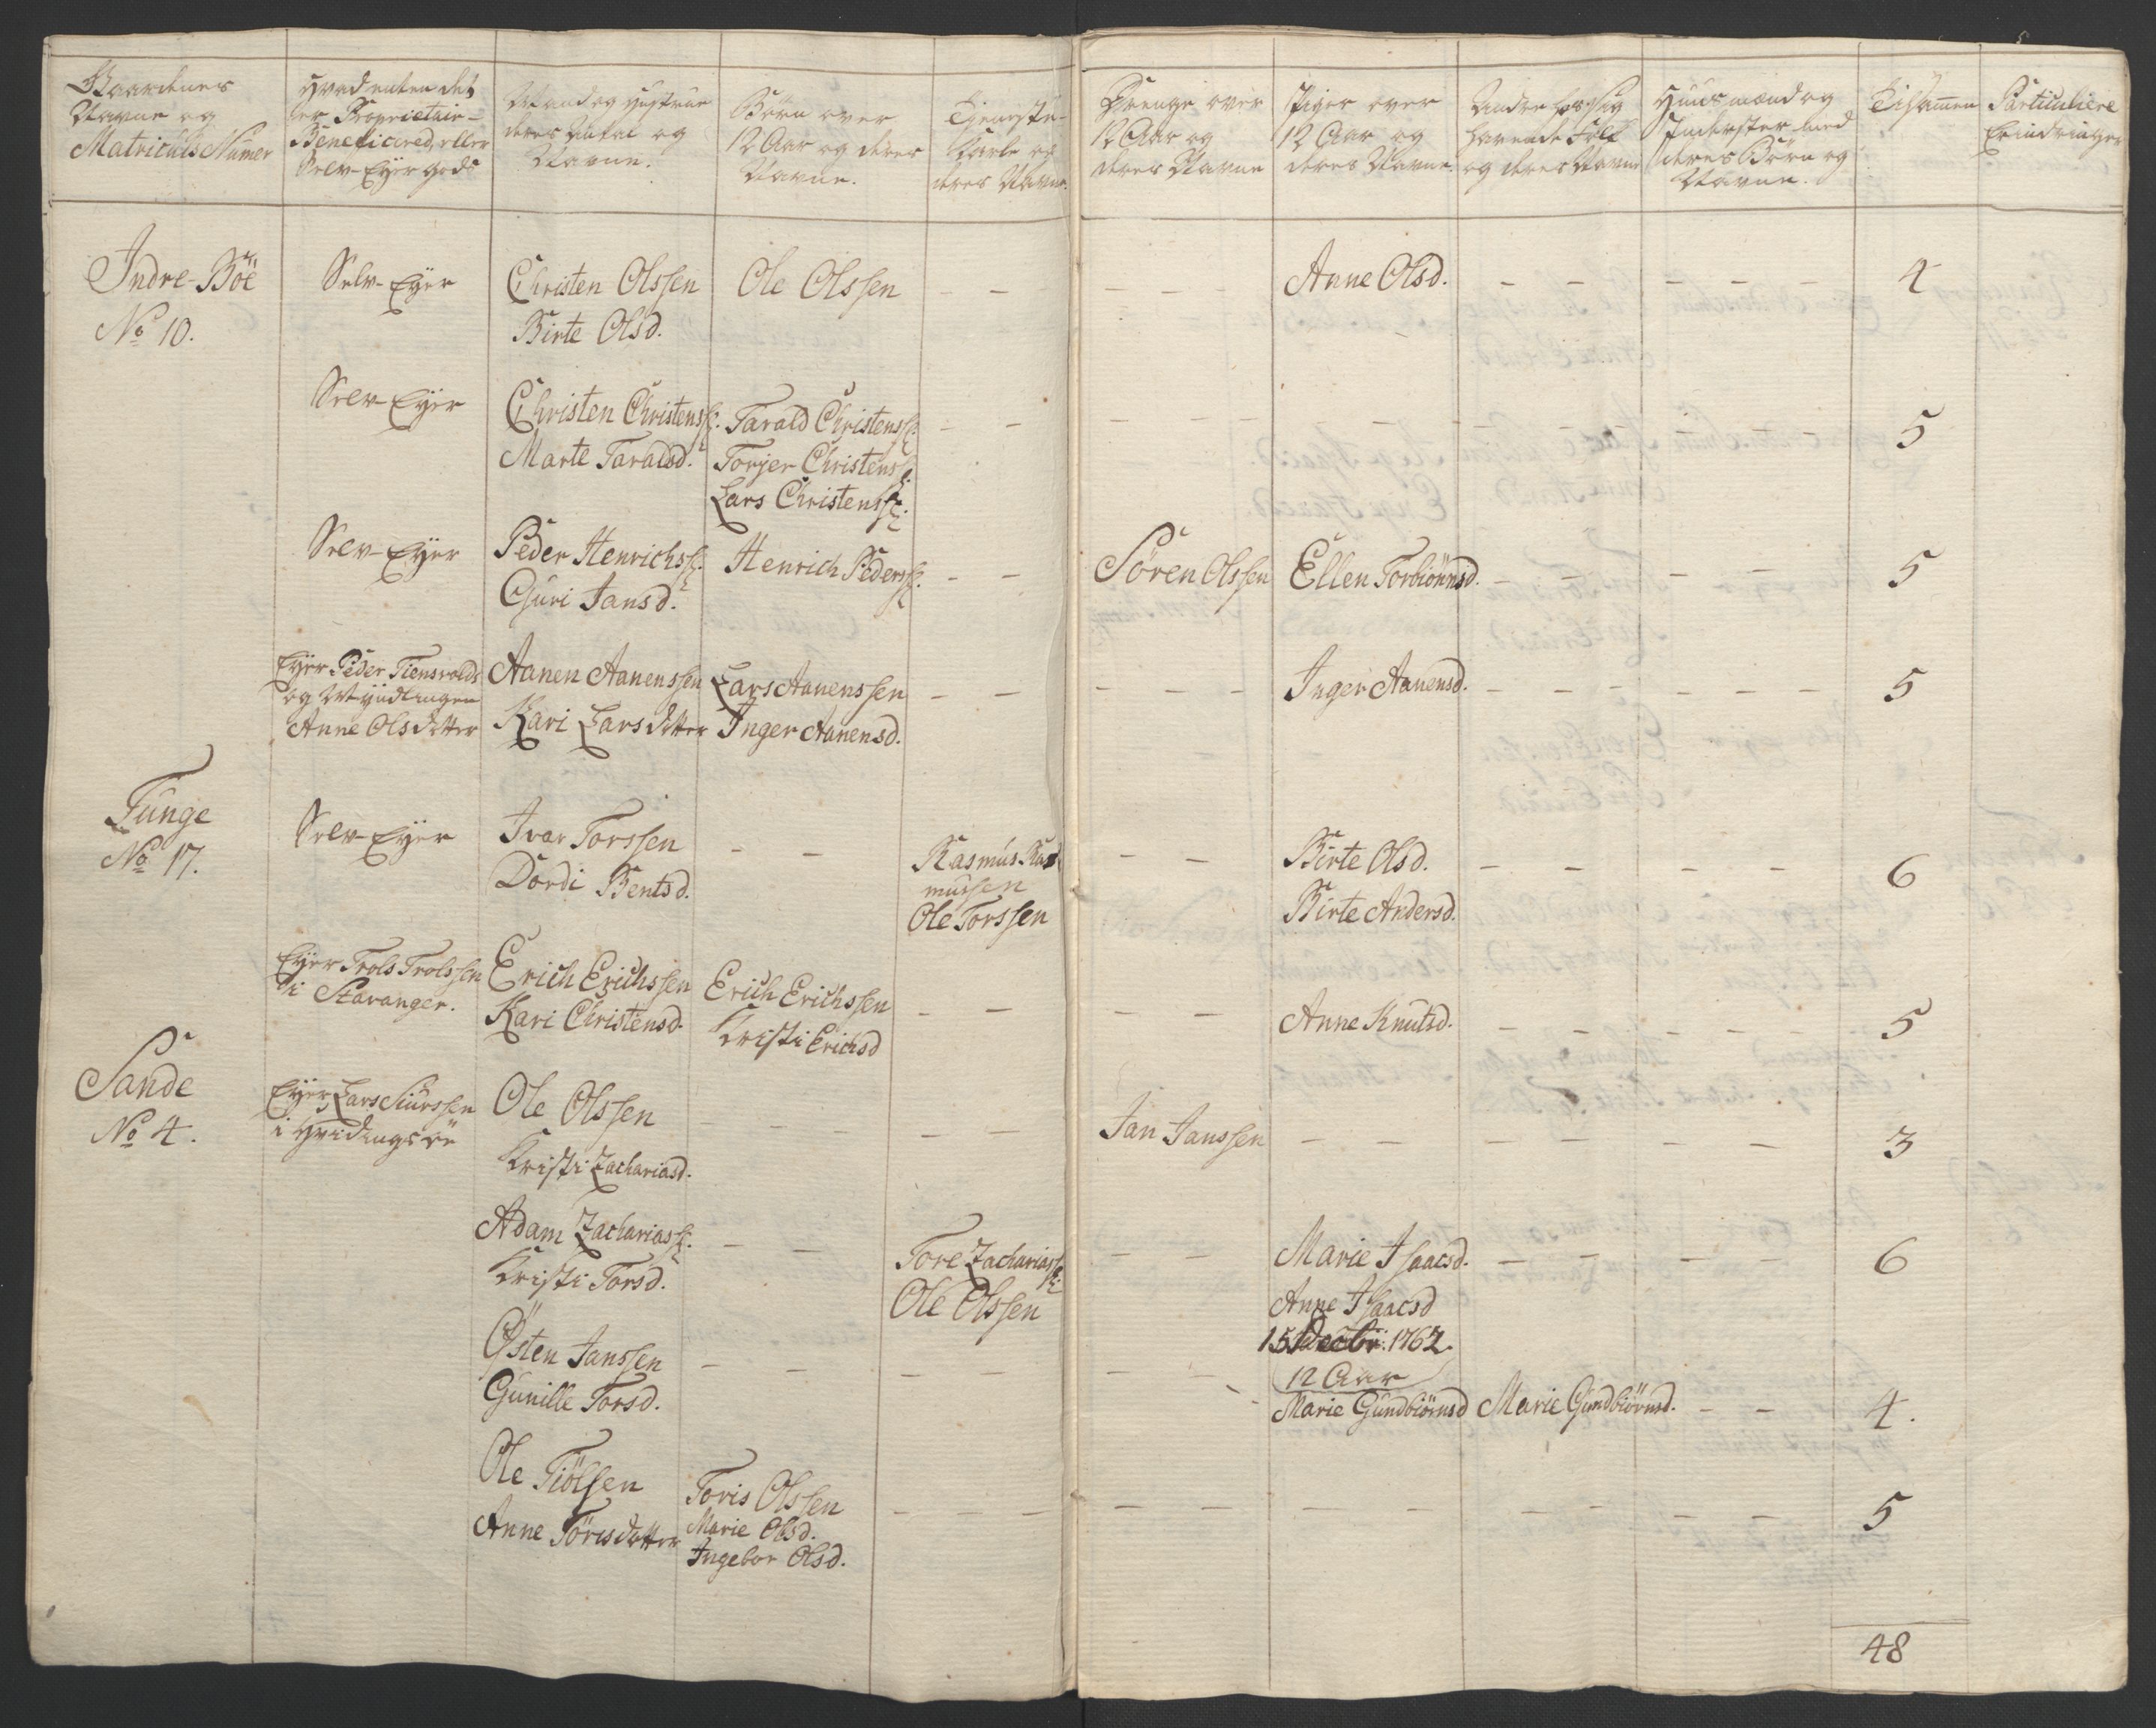 Gaardenes
Navne og
Matriculs Numer
Hvad enten det
er Proprietair-
Beneficered, eller
Selv-Eyer gods
Mand og Hustrue
deres Antal og
Navne.
Børn over
12 Aar og deres
Navne.
Tjeneste-
Karle og
deres Navne.
Drenge over
12 Aar og
deres Navne
Piger over
12 Aar og
deres Navne.
Andre for sig
havende Folk
og deres Navne
Huusmænd og
Inderster med
deres Børn og
Navne.
Tilsamen
Particuliere
Erindringer
Indre-Böe
No 10.
Selv-Eyer
Christen Olssen
Birte Olsd.
Ole Olssen
- -
- - -
Anne Olsd.
- - - - -
4
Selv-Eyer
Christen Christenss:
Marte Taraldsd.
Tarald Christenss:
Torjer Christenss:
Lars Christenss:
- -
- -
- - - - - -
5
Selv-Eyer
Peder Henrichss:
Guri Jansd.
Henrich Pederss:
- -
Sören Olssen
Ellen Torbiörnsd.
- - - -
5
Eyer Peder Tiensvolds
og Myndlingen
Anne Olsdatter
Aanen Aanenssen
Kari Larsdatter
Lars Aanenssen
Inger Aanensd.
- -
- - - -
Inger Aanensd.
- - - - - -
5
Tunge
No 17.
Selv-Eyer
Ivar Torssen
Dordi Bentsd.
- -
Rasmus Ras
mussen
Ole Torssen
- -
Birte Olsd.
Birte Andersd.
- - - -
6
Eyer Trols Trolssen
i Stavanger.
Erich Erichssen
Kari Christensd.
Erich Erichssen
Kristi Erichsd
- -
- -
Anne Knutsd.
- - - - -
5
Sande
No 4.
Eyer Lars Siurssen
i Hvidingsøe
Ole Olssen
Kristi Zachariasd.
- - -
- -
Jan Janssen
- - - - - -
3
Adam Zachariass:
Kristi Torsd.
- -
Tore Zachariass:
Ole Olssen
- -
Marie Isaacsd.
Anne Isaacsd
15 Decbr: 1762.
12 Aar
- - - -
6
Östen Janssen
Gunille Torsd.
- -
- -
- -
Marie Gundbiörnsd
Marie Gundbiörnsd.
- -
4.
Ole Tiölsen
Anne Törisdatter
Toris Olssen
Marie Olsd.
Ingebor Olsd.
- - -
- - - - - - - -
5
48